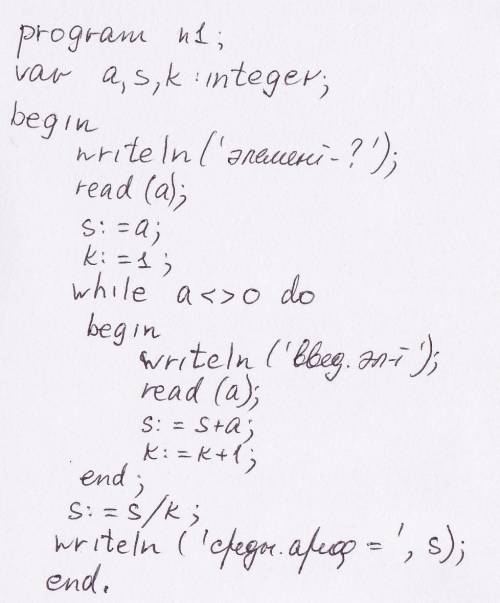 program n1;
var a,s,k:integer;
begin
writeln('элемент-?');
read(a);
s:=a;
k:=1;
while a<>0 do
begin
writeln('введ. эл-т');
read(a);
s:=s+a;
k:=k+1;
end;
s:=s/k;
writeln('средн. арифм=', s);
end.